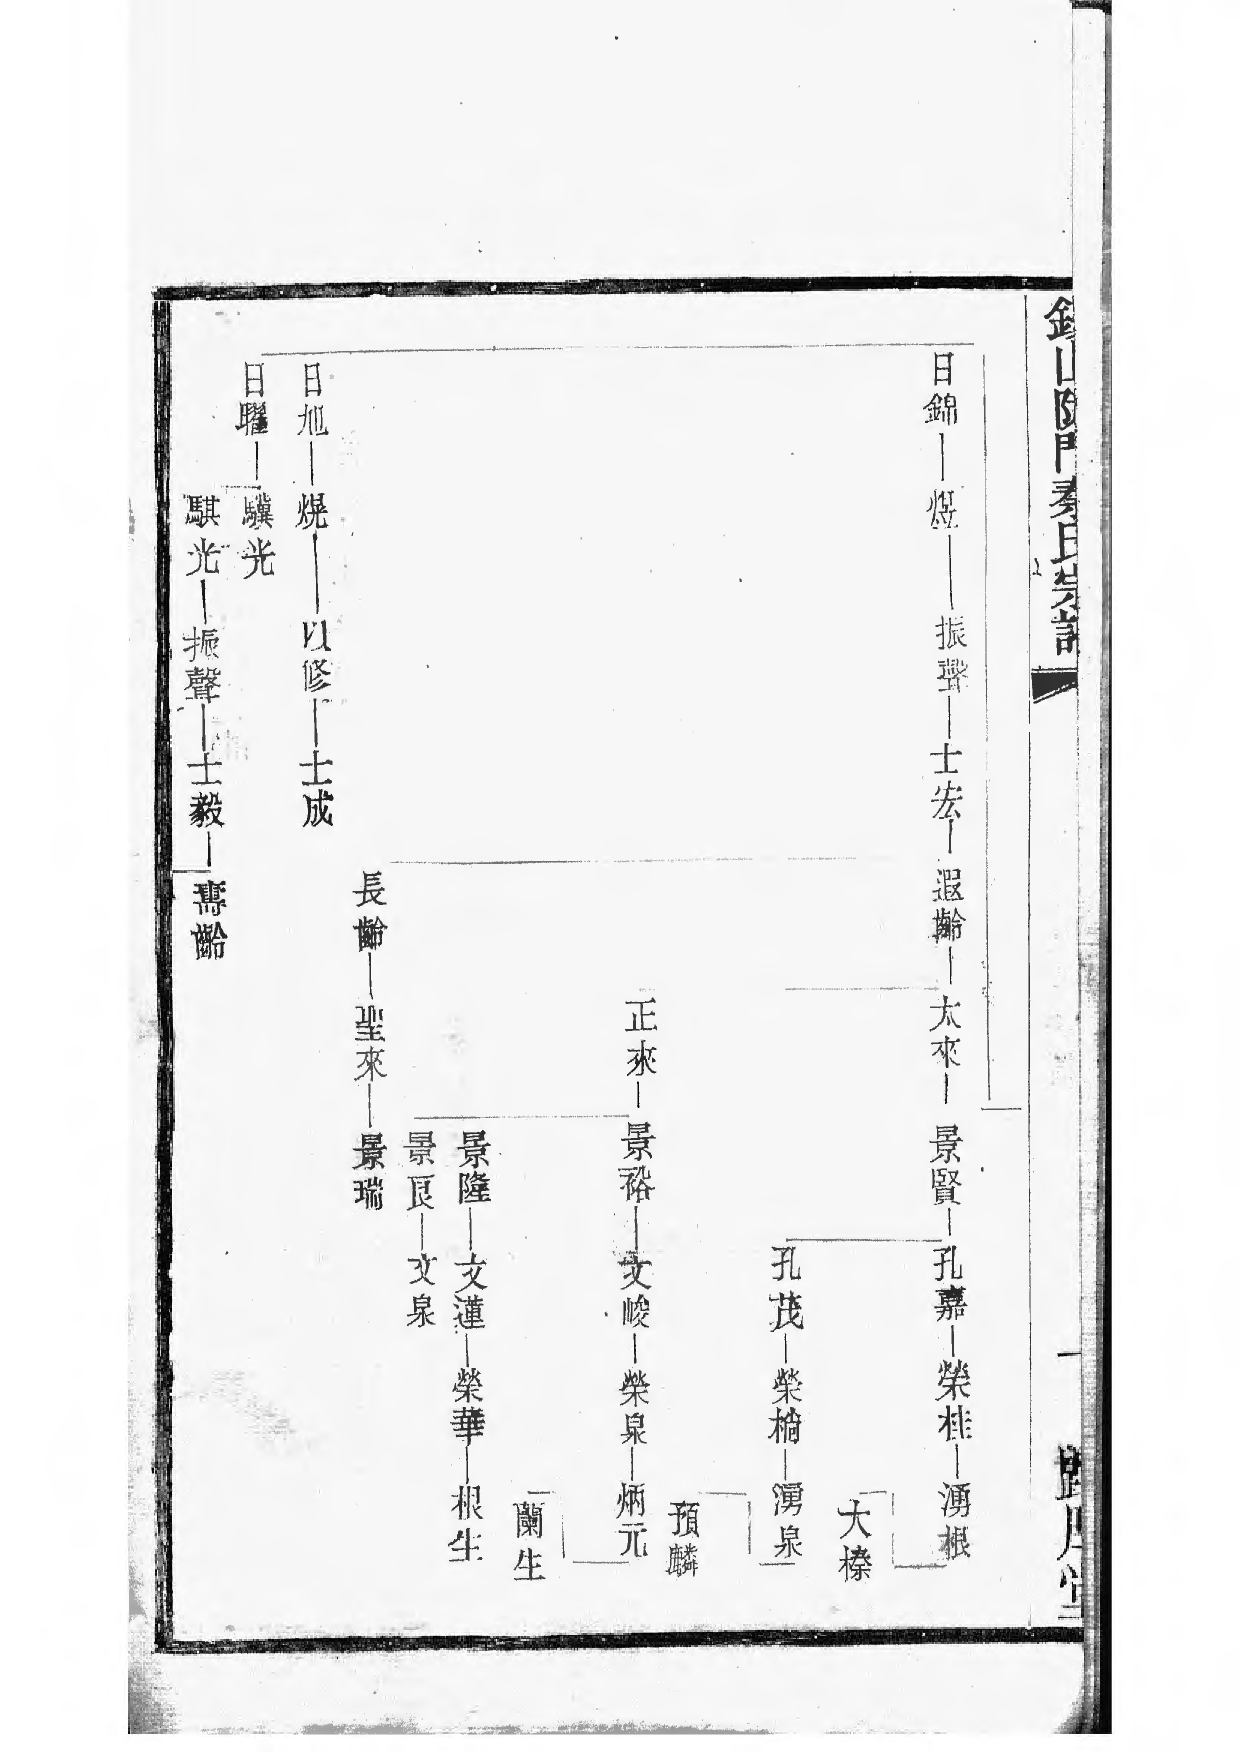 錫山陡門秦氏宗譜
一
日錦 煜 振聲 士宏 遐齡 太來 景賢 孔嘉 榮桂 湧根
大榛
孔茂 榮椿 湧泉
預麟
正來 景裕 文峻 榮泉 炳元
蘭生
景隆 文蓮 榮華 根生
景良 文泉
長齡 聖來 景瑞
日旭 熀 以修 士成
日曜 驥光
騏光 振聲 士毅 壽齡